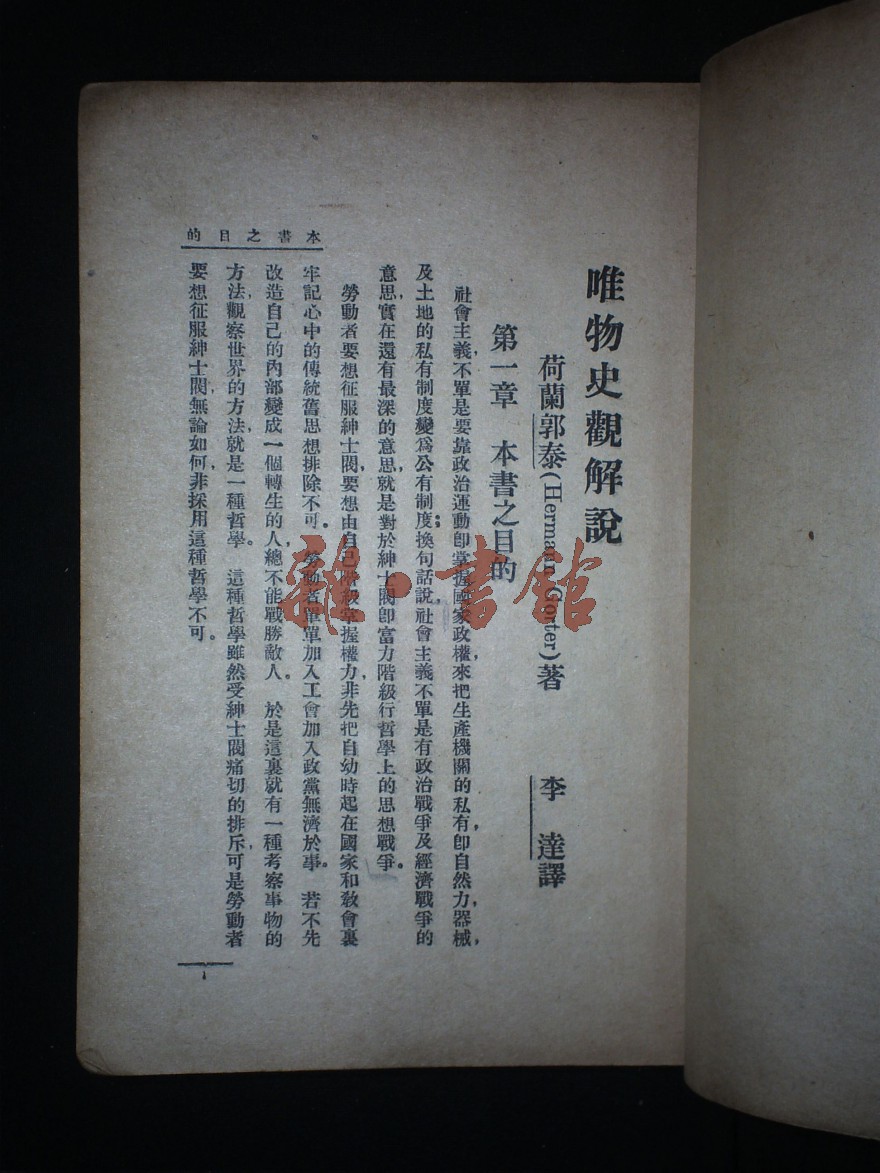 唯物史觀解說
荷蘭郭泰(Hermann Gorter)著 李達譯
第一章 本書之目的
社會主義,不單是要靠政治運動卽掌握國家政權,來把生產機關的私有,卽自然力,器械,
及土地的私有制度,變爲公有制度;換句話說,社會主義不單是有政治戰爭及經濟戰爭的
意思,實在還有最深的意思,就是對於紳士閥卽富力階級行哲學上的思想戰爭。
勞動者要想征服紳士閥,要想由自己階級掌握權力,非先把自幼時起在國家和敎會裏
牢記心中的傳統舊思想排除不可。勞動者單單加入工會加入政黨,無濟於事。若不先
改造自己的內部,變成一個轉生的人,總不能戰勝敵人。於是這裏就有一種考察事物的
方法,觀察世界的方法,就是一種哲學。這種哲學雖然受紳士閥痛切的排斥,可是勞動者
要想征服紳士閥,無論如何,非採用這種哲學不可。
本書之目的
1
龍·書館